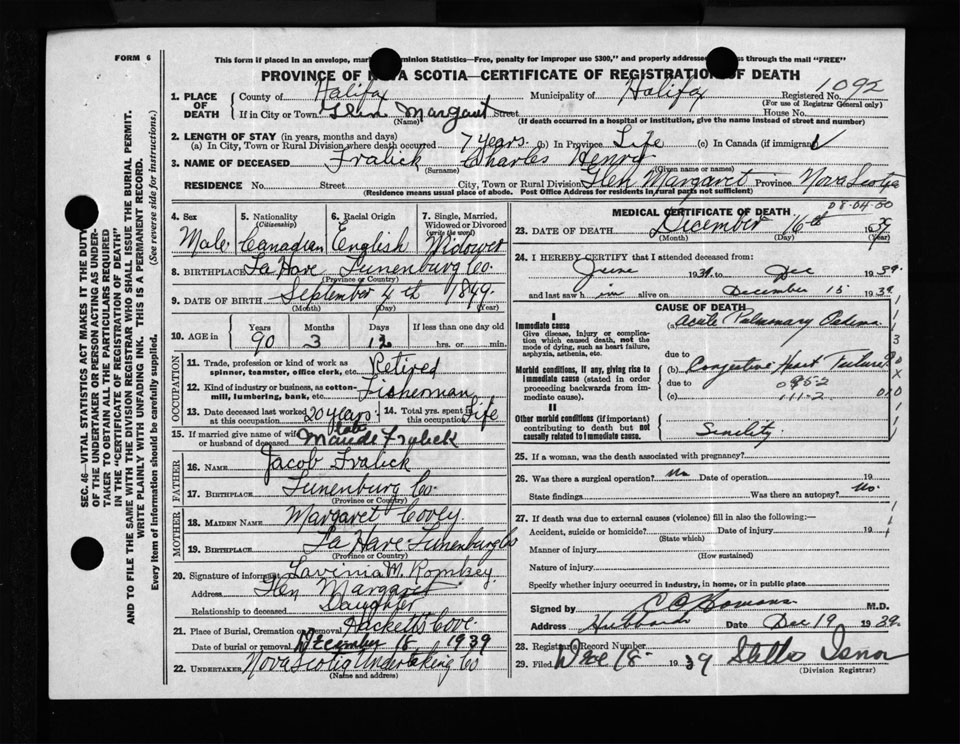 FORM 6
This form if placed in an envelope, mar minion Statistics—Free, penalty for improper use $300," and properly addresse s through the mail "FREE"
PROVINCE OF N VA SCOTIA—CERTIFICATE OF REGISTRATION OF DEATH
1092
1. PLACE OF DEATH County of Halifax Municipality of Halifax Registered No.
(For use of Registrar General only)
If in City or Town Glen Margaret Street House No.
(Name) (If death occurred in a hospital or institution, give the name instead of street and number)
2. LENGTH OF STAY (in years, months and days)
(a) In City, Town or Rural Division where death occurred 7 years (b) In Province Life (c) In Canada (if immigrant)
3. NAME OF DECEASED Fralick Charles Henry
(Surname) (Given name or names)
RESIDENCE No. Street City, Town or Rural Division Glen Margaret Province Nova Scotia
(Residence means usual place of abode. Post Office Address for residents in rural parts not sufficient)
SEC. 46—VITAL STATISTICS ACT MAKES IT THE DUTY
OF THE UNDERTAKER OR PERSON ACTING AS UNDER-
TAKER TO OBTAIN ALL THE PARTICULARS REQUIRED
IN THE "CERTIFICATE OF REGISTRATION OF DEATH"
AND TO FILE THE SAME WITH THE DIVISION REGISTRAR WHO SHALL ISSUE THE BURIAL PERMIT.
WRITE PLAINLY WITH UNFADING INK. THIS IS A PERMANENT RECORD.
Every item of Information should be carefully supplied. (See reverse side for instructions.)
4. Sex 5. Nationality (Citizenship) 6. Racial Origin 7. Single, Married, Widowed or Divorced (write the word)
Male Canadian English Widower
8. BIRTHPLACE La Have Lunenburg Co.
(Province or Country)
9. DATE OF BIRTH September 4th 1849
(Month) (Day) (Year)
10. AGE in Years Months Days If less than one day old
90 3 12 hrs. or min.
OCCUPATION
11. Trade, profession or kind of work as spinner, teamster, office clerk, etc. Retired
12. Kind of industry or business, as cotton-mill, lumbering, bank, etc. Fisherman
13. Date deceased last worked at this occupation 20 years 14. Total yrs. spent in this occupation Life
15. If married give name of wife or husband of deceased late Maude Fralick
FATHER
16. NAME Jacob Fralick
17. BIRTHPLACE Lunenburg Co.
(Province or Country)
MOTHER
18. MAIDEN NAME Margaret Covey
19. BIRTHPLACE La Have Lunenburg Co
(Province or Country)
20. Signature of informant Lavinia M. Romkey
Address Glen Margaret
Relationship to deceased Daughter
21. Place of Burial, Cremation or Removal Hacketts Cove
Date of burial or removal December 18 1939
22. UNDERTAKER Nova Scotia Undertaking Co
(Name and address)
MEDICAL CERTIFICATE OF DEATH 08-04-80
23. DATE OF DEATH December 16th 1939
(Month) (Day) (Year)
24. I HEREBY CERTIFY that I attended deceased from:
June 1939 to Dec 1939
and last saw h im alive on December 15 1939
CAUSE OF DEATH
I
Immediate cause (a) Acute Pulmonary Oedema
Give disease, injury or complication which caused death, not the mode of dying, such as heart failure, asphyxia, asthenia, etc.
due to
Morbid conditions, if any, giving rise to immediate cause (stated in order proceeding backwards from immediate cause).
(b) Congestive Heart Failure
due to 0952
(c) 111-2
II
Other morbid conditions (if important) contributing to death but not causally related to immediate cause.
Senility
25. If a woman, was the death associated with pregnancy?
26. Was there a surgical operation? No Date of operation 19
State findings Was there an autopsy? No
27. If death was due to external causes (violence) fill in also the following:—
Accident, suicide or homicide? Date of injury 19
(State which)
Manner of injury
(How sustained)
Nature of injury
Specify whether injury occurred in industry, in home, or in public place
Signed by M.D.
Address Hubbards Date Dec 19 1939
28. Registrars Record Number
29. Filed Dec 18 1939 Isnor
(Division Registrar)